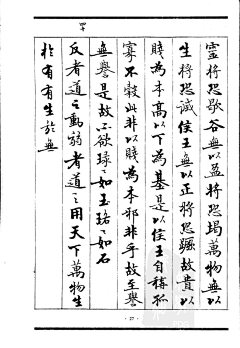 靈將恐歇谷無以盈將恐竭萬物無以
生將恐滅侯王無以正將恐蹶故貴以
賤為本高以下為基是以侯王自稱孤
寡不穀此非以賤為本邪非乎故至譽
無譽是故不欲琭〻如玉珞〻如石
四十
反者道之動弱者道之用天下萬物生
於有有生於無
- 27 -